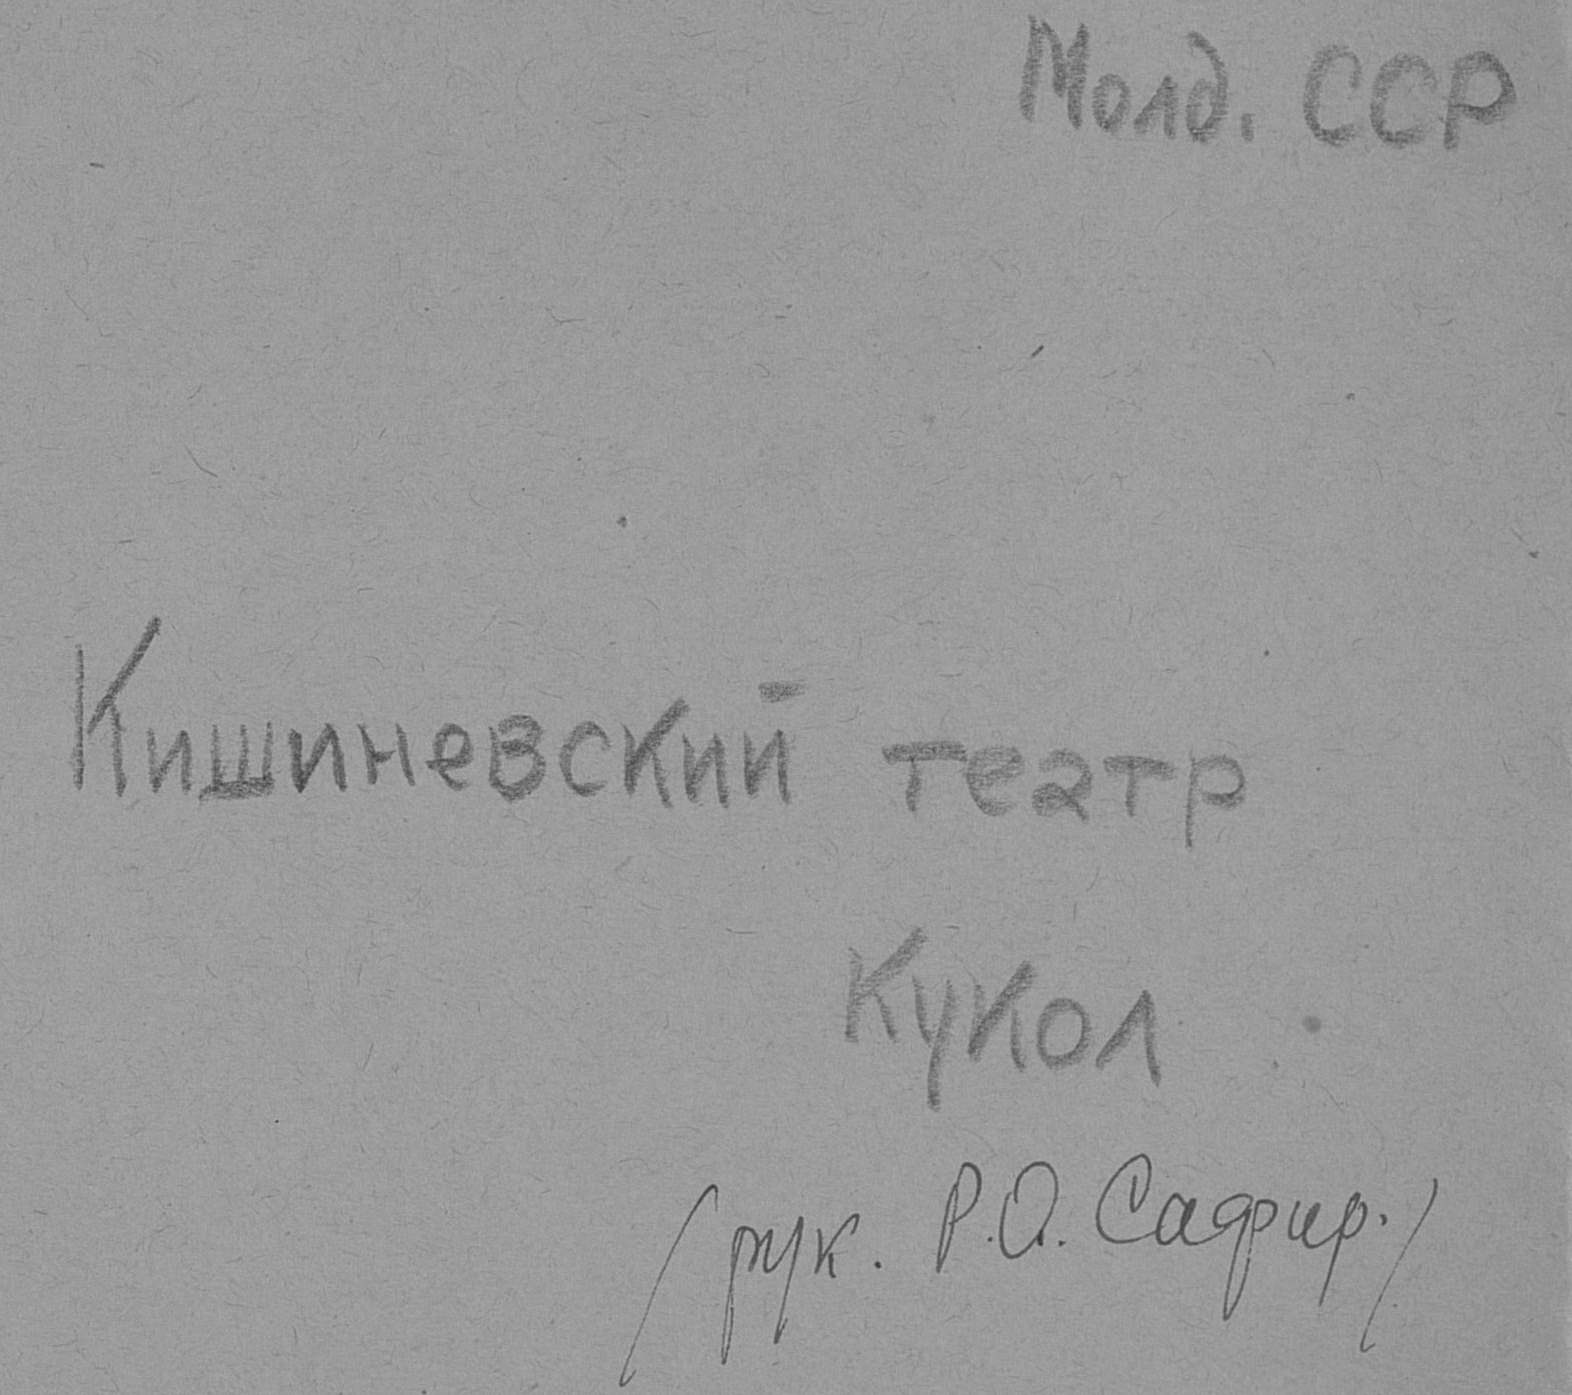 Молд. ССР
Кишиневский театр
кукол
(рук. Р.О. Сафир.)